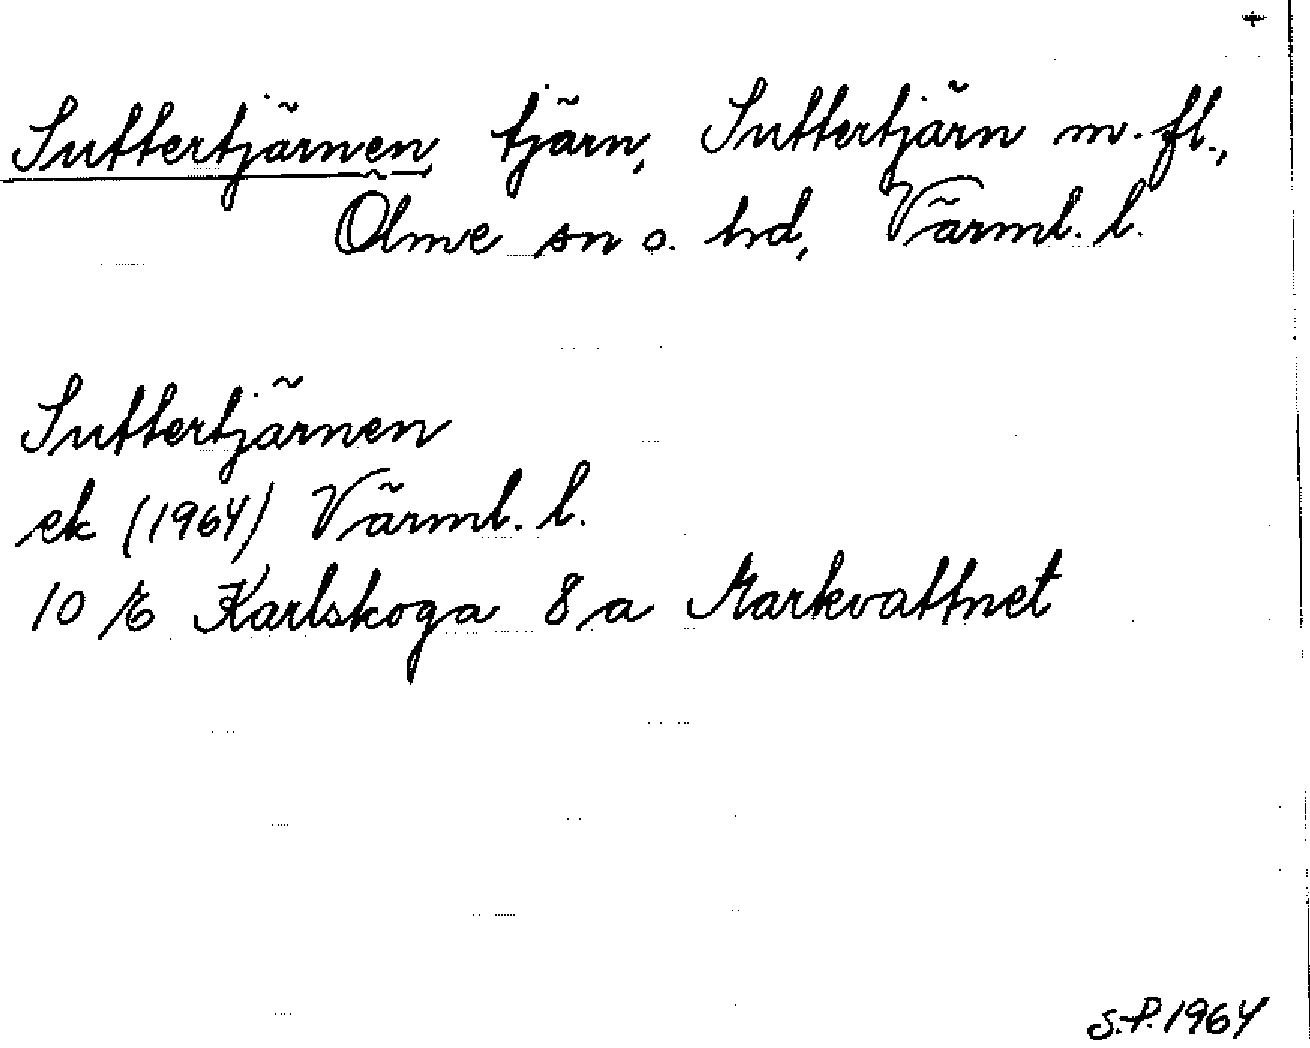 Suttertjärnen, tjärn, Suttertjärn m. fl.,
Ölme sn o. hd, Värml. l.
Suttertjärnen
ek (1964) Värml. l.
10 E Karlskoga 8 a Markvattnet
S.P. 1964